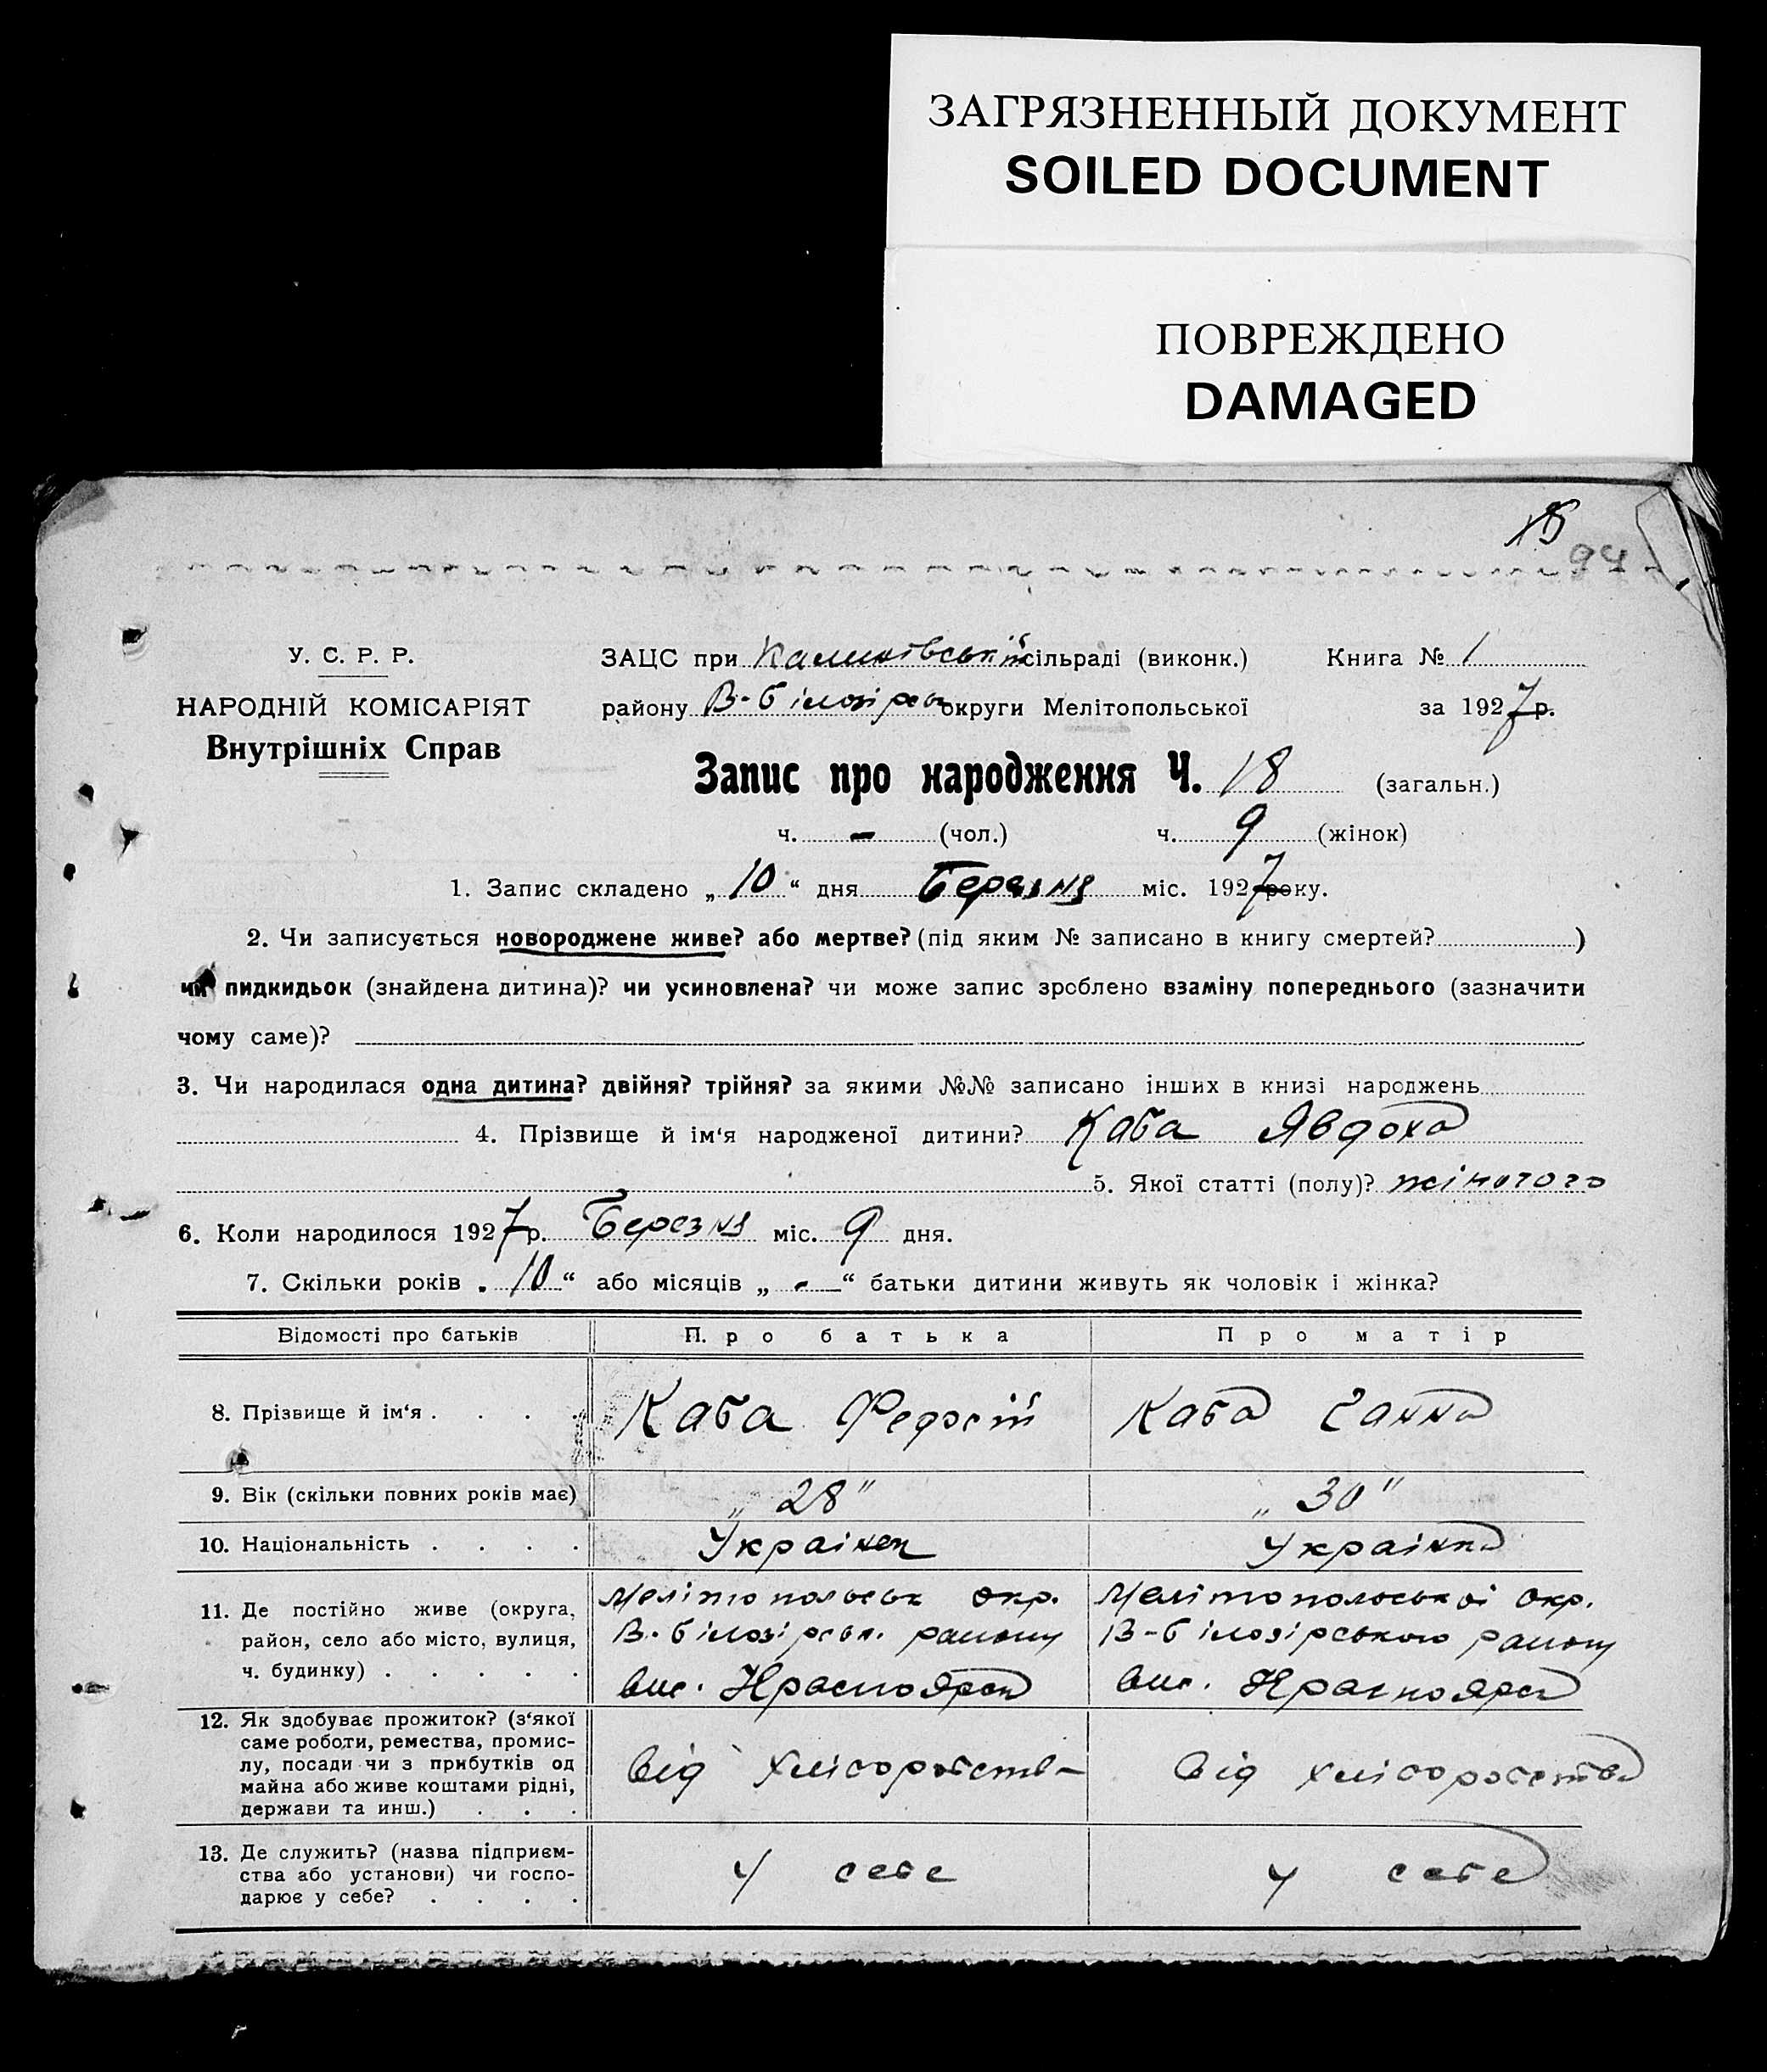 ЗАГРЯЗНЕННЫЙ ДОКУМЕНТ
SOILED DOCUMENT
ПОВРЕЖДЕНО
DAMAGED
94
У. С. Р. Р.
НАРОДНІЙ КОМІСАРІЯТ
Внутрішніх Справ
ЗАЦС при сільраді (виконк.) Книга № 1
району В-білозірськ округи Мелітопольської за 1927 р.
Запис про народження Ч. 18 (загальн.)
ч. - (чол.) ч. 9 (жінок)
1. Запис складено „ 10 “ дня Березня міс. 1927 року.
2. Чи записується новороджене живе? або мертве? (під яким № записано в книгу смертей? )
чи пидкидьок (знайдена дитина)? чи усиновлена? чи може запис зроблено взаміну попереднього (зазначити
чому саме)?
3. Чи народилася одна дитина? двійня? трійня? за якими №№ записано інших в книзі народжень
4. Прізвище й ім‘я народженої дитини? Каба Явдоха
5. Якої статті (полу)? жіночого
6. Коли народилося 1927 р. Березня міс. 9 дня.
7. Скільки років „ 10 “ або місяців „ - “ батьки дитини живуть як чоловік і жінка?
Відомості про батьків Про батька Про матір
8. Прізвище й ім‘я . . . . Каба Федосій Каба Ганна
9. Вік (скільки повних років має) „ 28 " „ 30 "
10. Національність . . . . Українец Українка
11. Де постійно живе (округа, район, село або місто, вулиця, ч. будинку) . . . . .
Мелітопольськ окр.
В-білозірськ. району
вис. Красноярськ
Мелітопольської окр.
В-білозірського району
вис. Красноярськ
12. Як здобуває прожиток? (з‘якої
саме роботи, ремества, промис-
лу, посади чи з прибутків од
майна або живе коштами рідні,
держави та инш.) . . .
від хліборобства від хліборобства
13. Де служить? (назва підприєм-
ства або установи) чи госпо-
дарює у себе? . . . .
у себе у себе